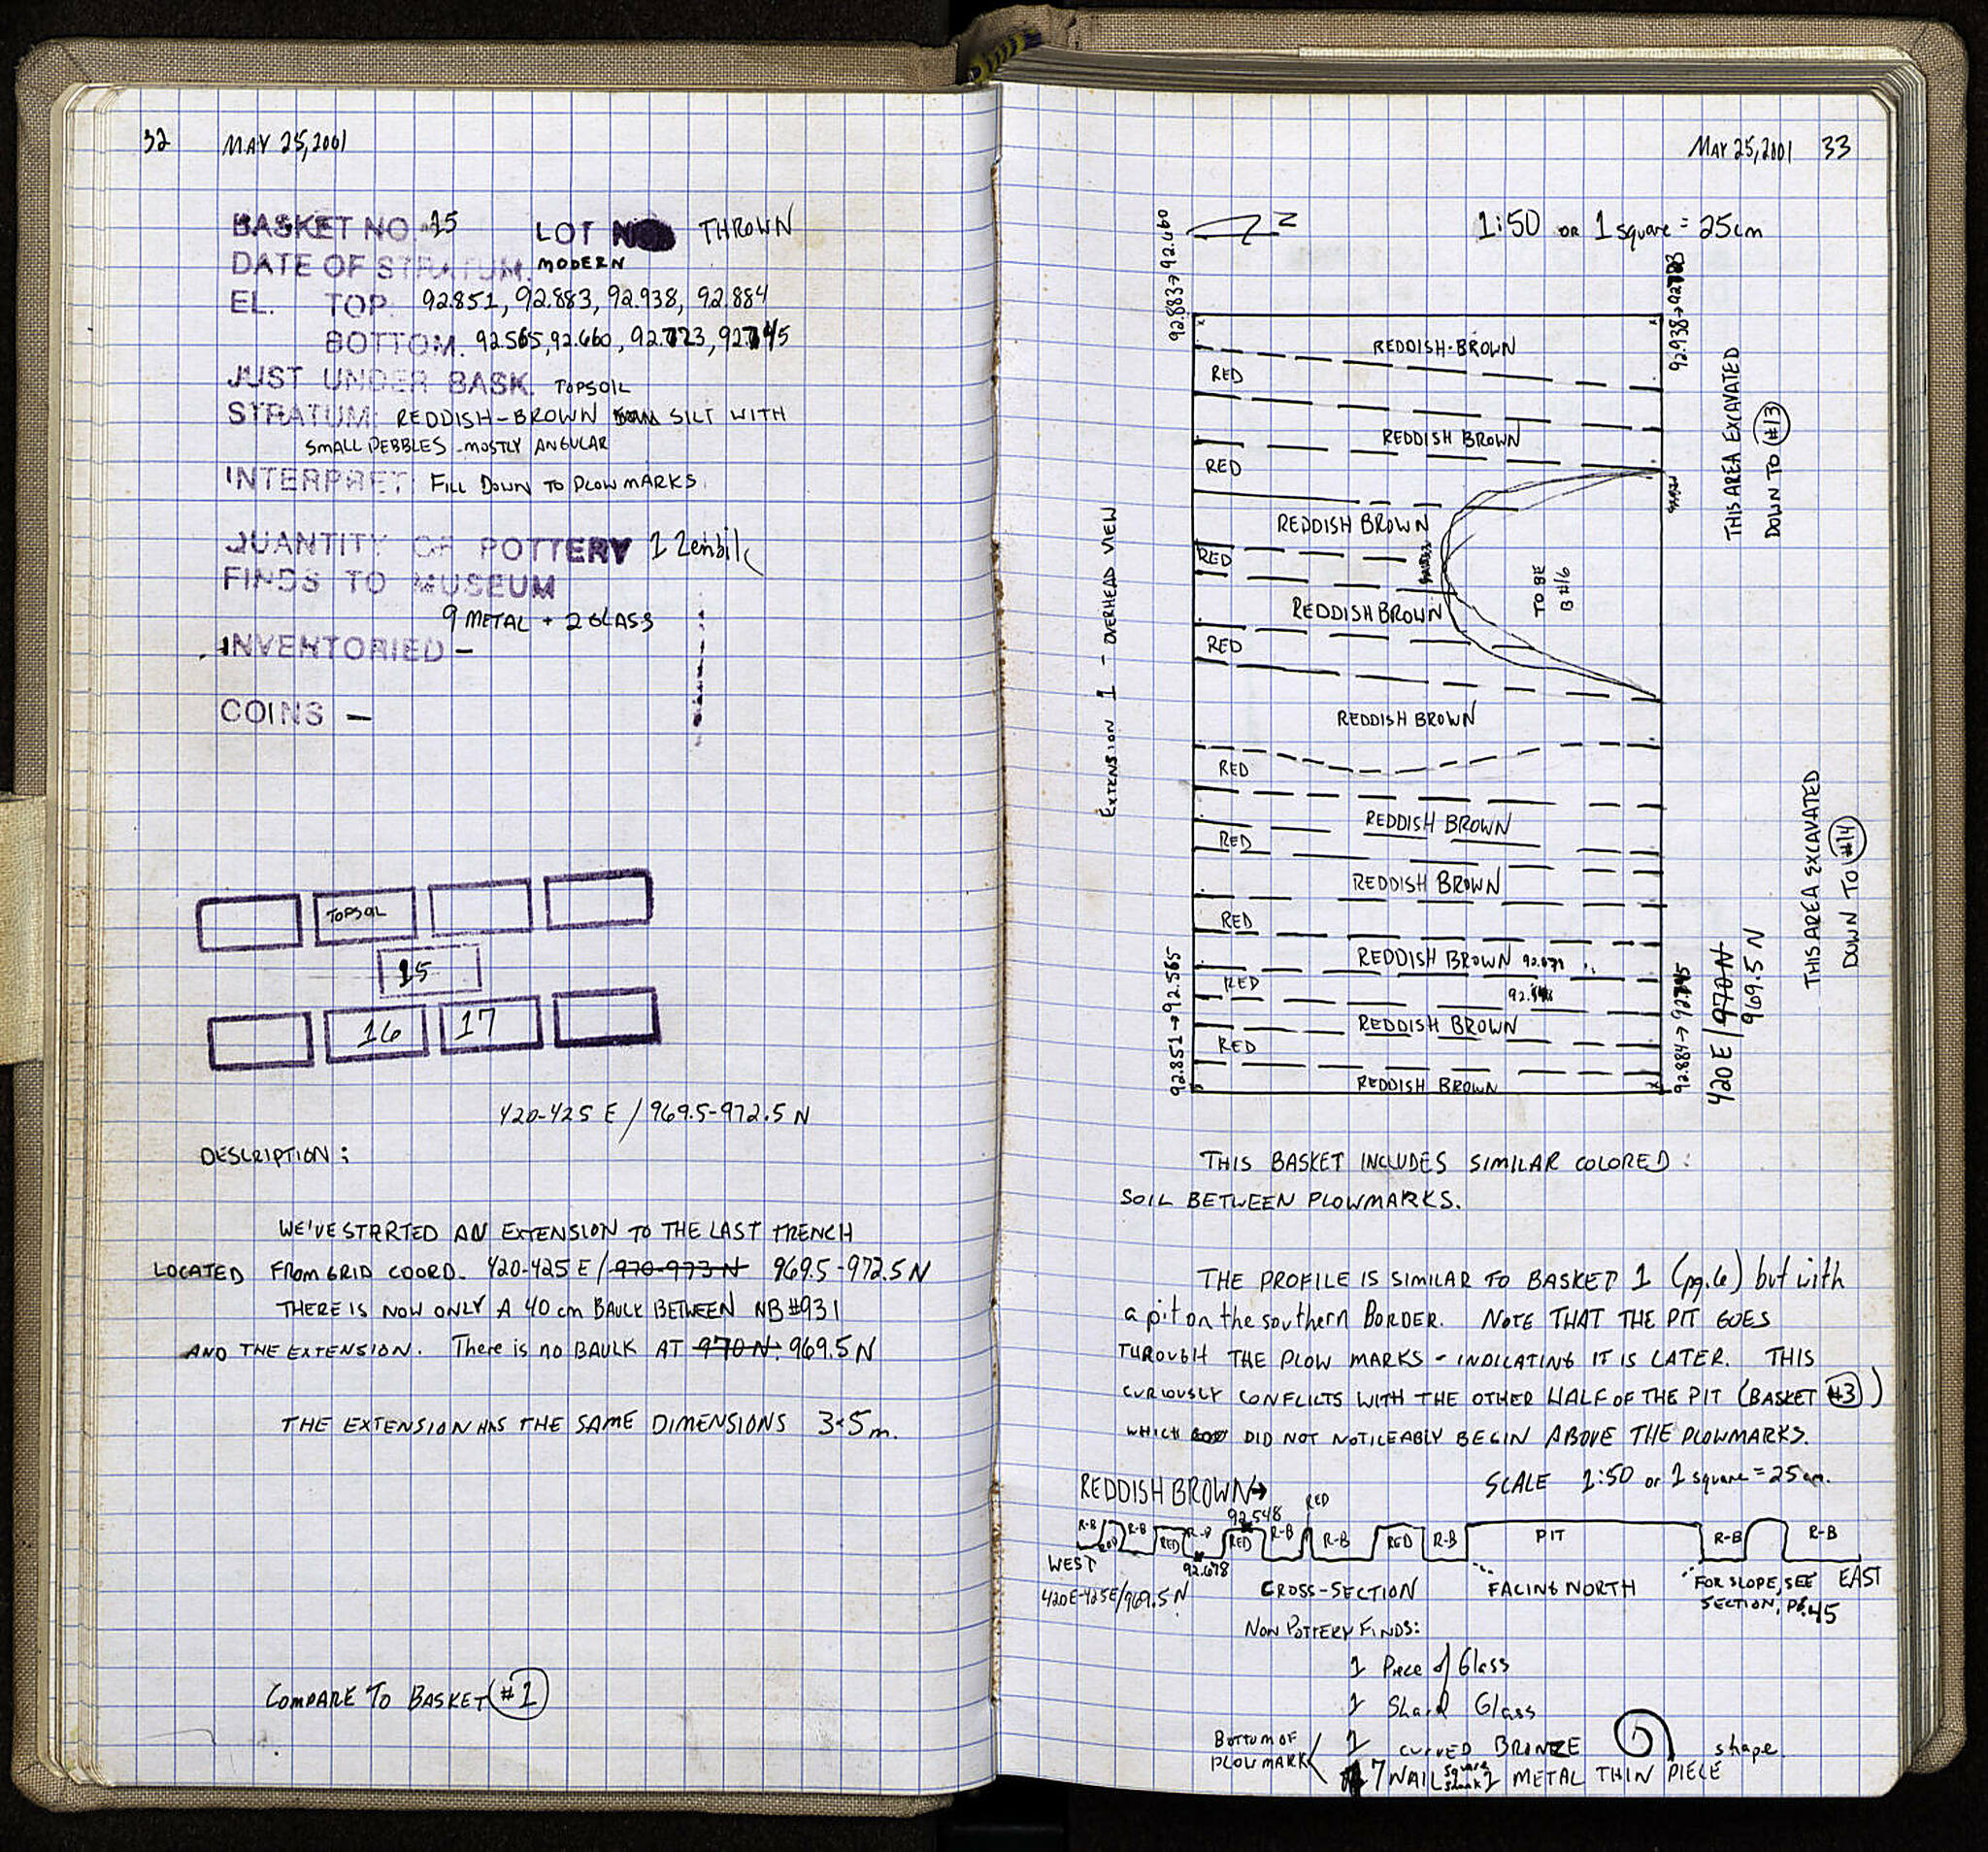 32 MAY 25, 2001
BASKET NO. 15 LOT THROWN
DATE OF STRATUM. MODERN
EL. TOP. 92.851, 92.883, 92.938, 92.884
BOTTOM. 92.565, 92.660, 92.723, 92.745
JUST UNDER BASK. TOPSOIL
STRATUM: REDDISH-BROWN SILT WITH
SMALL PEBBLES - MOSTLY ANGULAR
INTERPRET: FILL DOWN TO PLOW MARKS.
QUANTITY OF POTTERY 1 Zenbil
FINDS TO MUSEUM
9 METAL + 2 GLASS
INVENTORIED -
COINS -
TOPSOIL
15
16 17
420-425 E / 969.5-972.5 N
DESCRIPTION:
WE'VE STARTED AN EXTENSION TO THE LAST TRENCH
LOCATED FROM GRID COORD. 420-425 E / 970-973 N 969.5-972.5 N
THERE IS NOW ONLY A 40 cm BAULK BETWEEN NB #931
AND THE EXTENSION. There is no BAULK AT 970 N. 969.5 N
THE EXTENSION HAS THE SAME DIMENSIONS 3×5 m.
COMPARE TO BASKET #1
MAY 25, 2001 33
1:50 OR 1 square = 25cm
Z
92.883→92.660
92.938→92.723
REDDISH-BROWN
RED
REDDISH BROWN
RED
REDDISH BROWN
RED
REDDISH BROWN
RED
REDDISH BROWN
RED
REDDISH BROWN
RED
REDDISH BROWN
RED
REDDISH BROWN 92.671
RED
REDDISH BROWN
RED
REDDISH BROWN
TO BE
B #16
EXTENSION 1 - OVERHEAD VIEW
THIS AREA EXCAVATED
DOWN TO #13
THIS AREA EXCAVATED
DOWN TO #14
92.851→92.565
92.884→92.745
420 E / 970 N
969.5 N
THIS BASKET INCLUDES SIMILAR COLORED:
SOIL BETWEEN PLOWMARKS.
THE PROFILE IS SIMILAR TO BASKET 1 (pg. 6) but with
a pit on the southern BORDER. NOTE THAT THE PIT GOES
THROUGH THE PLOW MARKS - INDICATING IT IS LATER. THIS
CURIOUSLY CONFLICTS WITH THE OTHER HALF OF THE PIT (BASKET #3)
WHICH DID NOT NOTICEABLY BEGIN ABOVE THE PLOWMARKS.
REDDISH BROWN→ SCALE 1:50 or 1 square = 25 cm.
92.548 RED
R-B RED R-B RED R-B RED R-B R-B RED R-B PIT R-B R-B
WEST 92.678
420E-425E/969.5 N CROSS-SECTION FACING NORTH FOR SLOPE, SEE EAST
SECTION, PG. 45
NON POTTERY FINDS:
1 Piece of Glass
1 Shard Glass
BOTTOM OF
PLOWMARK
1 CURVED BRONZE shape
7 NAIL square shank 1 METAL THIN PIECE